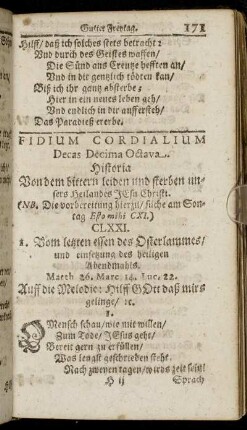 Gutter Freytag. 171
Hilff/ daß ich solches stets betracht:
Und durch des Geistes waffen/
Die Sünd ans Creutze hefften an/
Und in dir gentzlich tödten kan/
Biß ich ihr gantz absterbe;
Hier in ein neues leben geh/
Und endlich in dir aufferstehe/
Das Paradeiß ererbe.
FIDIUM CORDIALIUM
Decas Decima Octava.
Historia
Von dem bittern leiden und sterben un-
sers Heilandes JEsu Christi.
(NB. Die vorbereitung hierzu/ suche am Son-
tag Esto mihi CXI.)
CLXXI.
1. Vom letzten essen des Osterlammes/
und einsetzung des heiligen
Abendmahls.
March 26. Marc. 14. Luc. 22.
Auff die Melodie: Hilff GOtt daß mirs
gelinge/ ꝛc.
1.
O Mensch schau/ wie mit willen/
Zum Tode/ JEsus geht/
Bereit gern zu erfüllen/
Was längst geschrieben steht.
Nach zweyen tagen/ wirds zeit seyn/
H ij Sprach